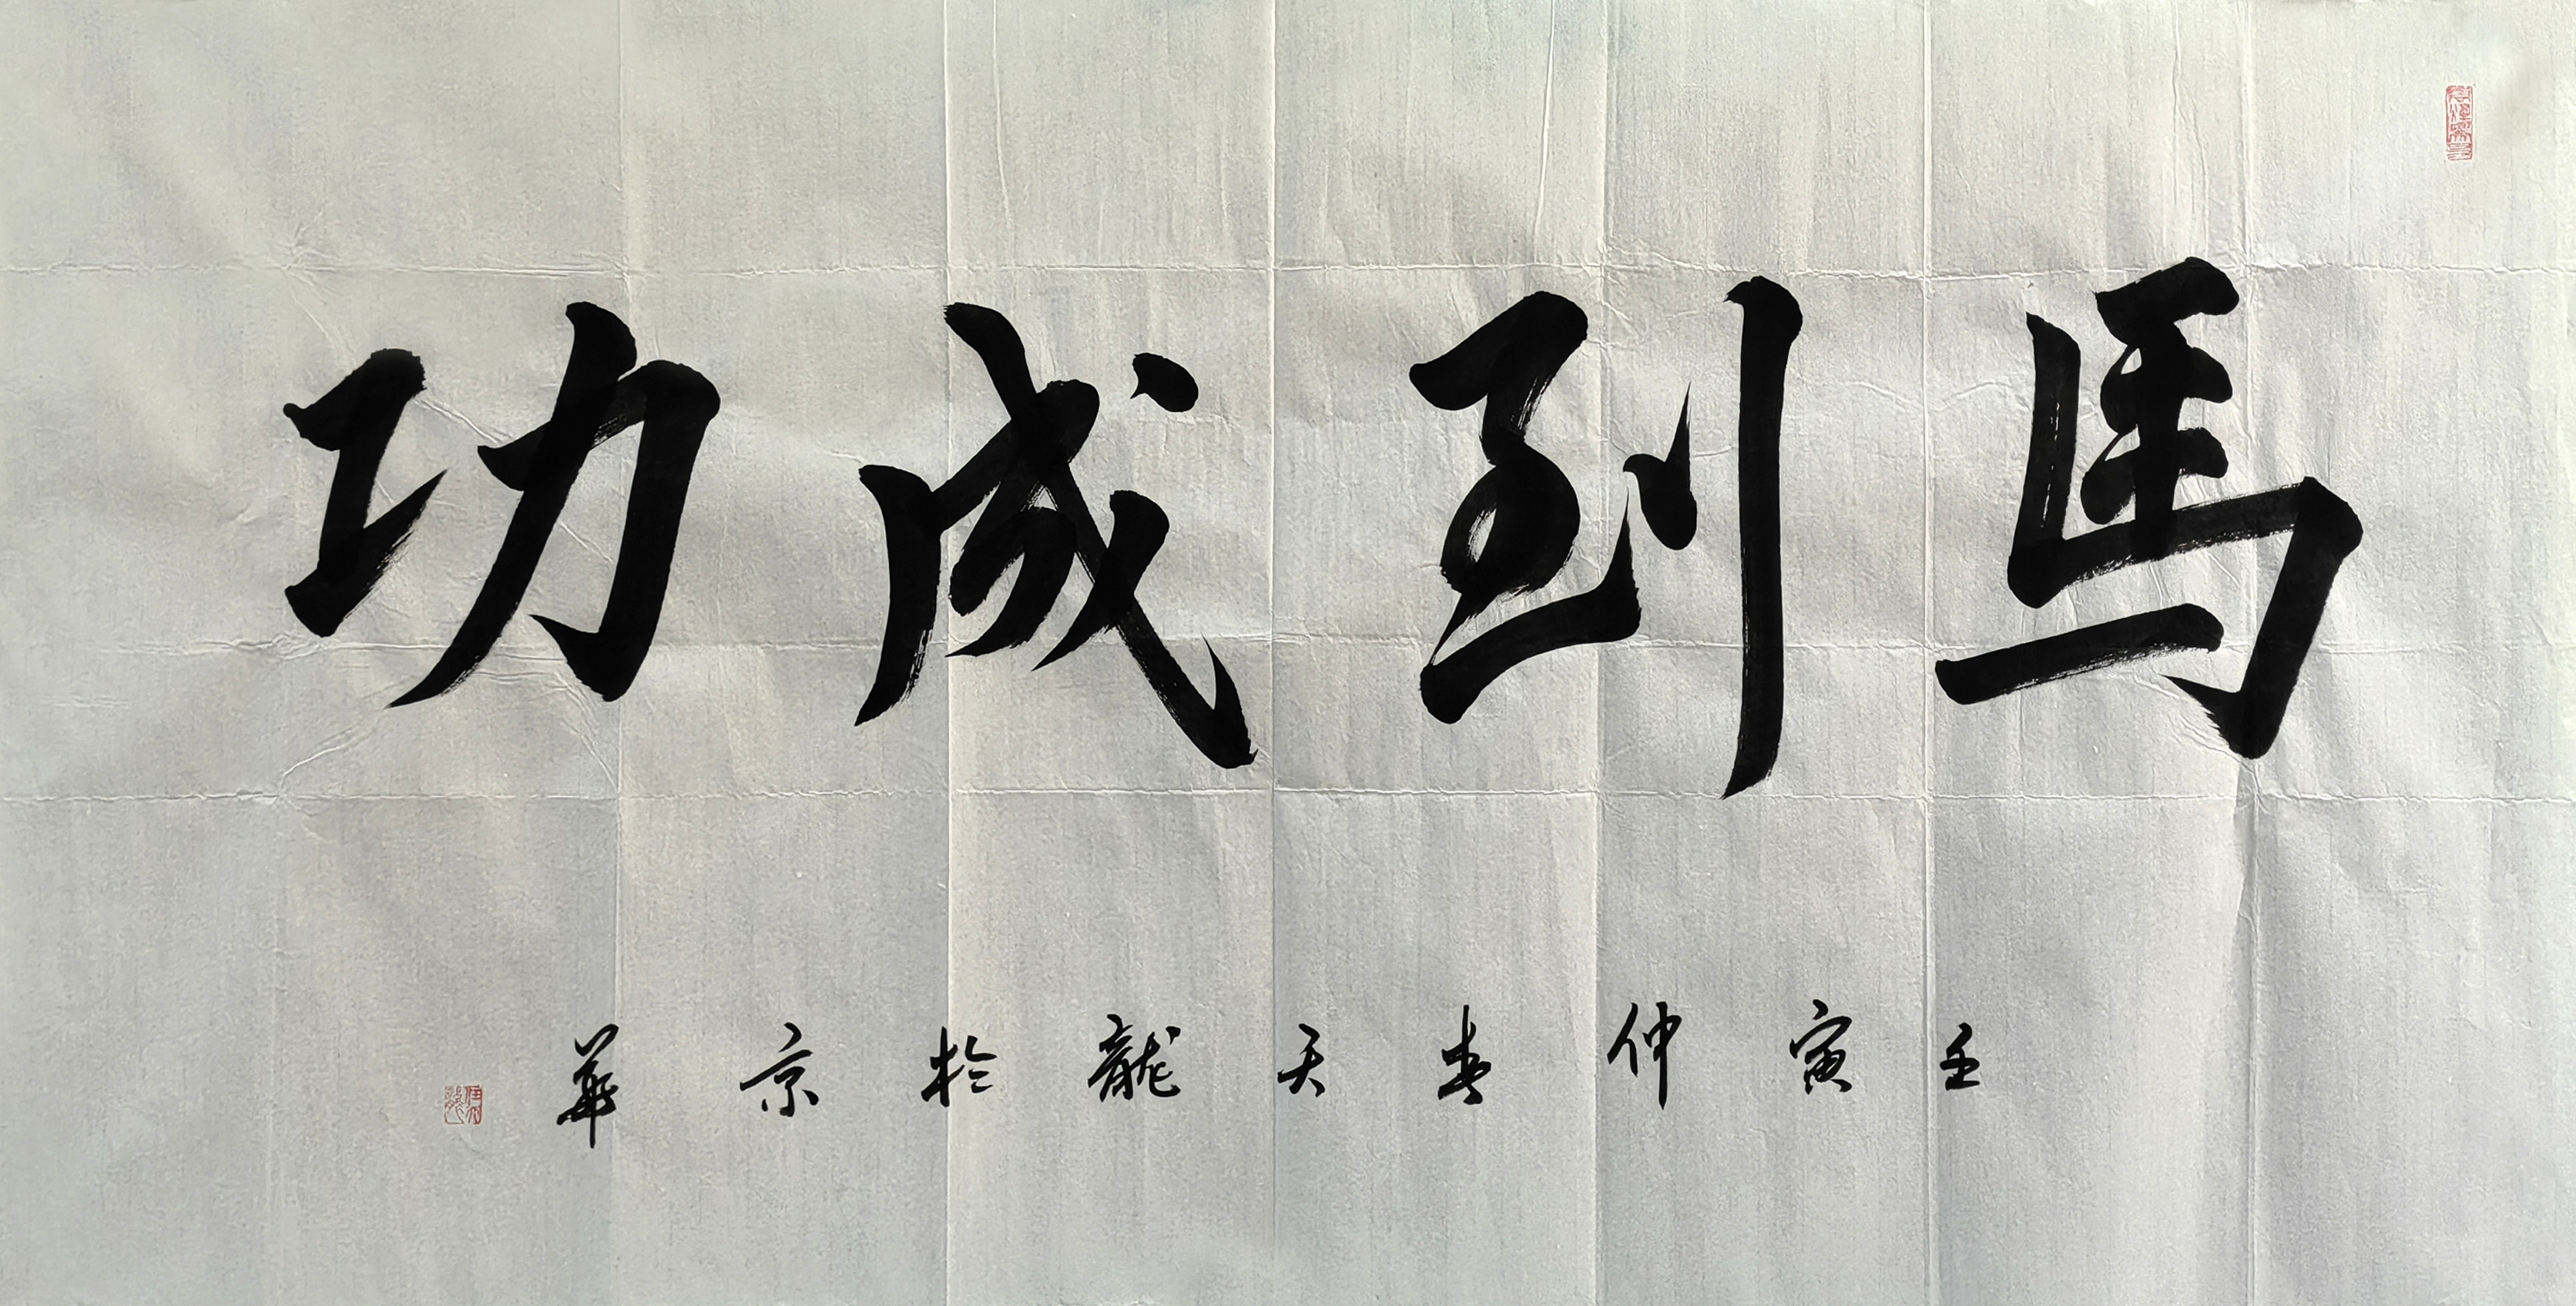 馬到成功
壬寅仲春天龍於京華